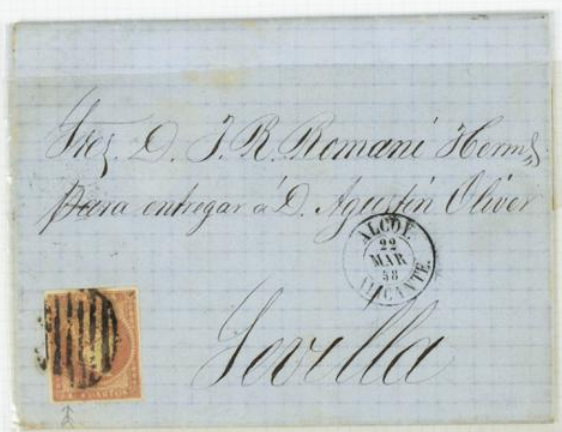 Sres. D. J. R. Romaní Herms
para entregar á D. Agustín Oliver
ALCOY.
22
MAR
58
ALICANTE.
Sevilla
CUARTOS